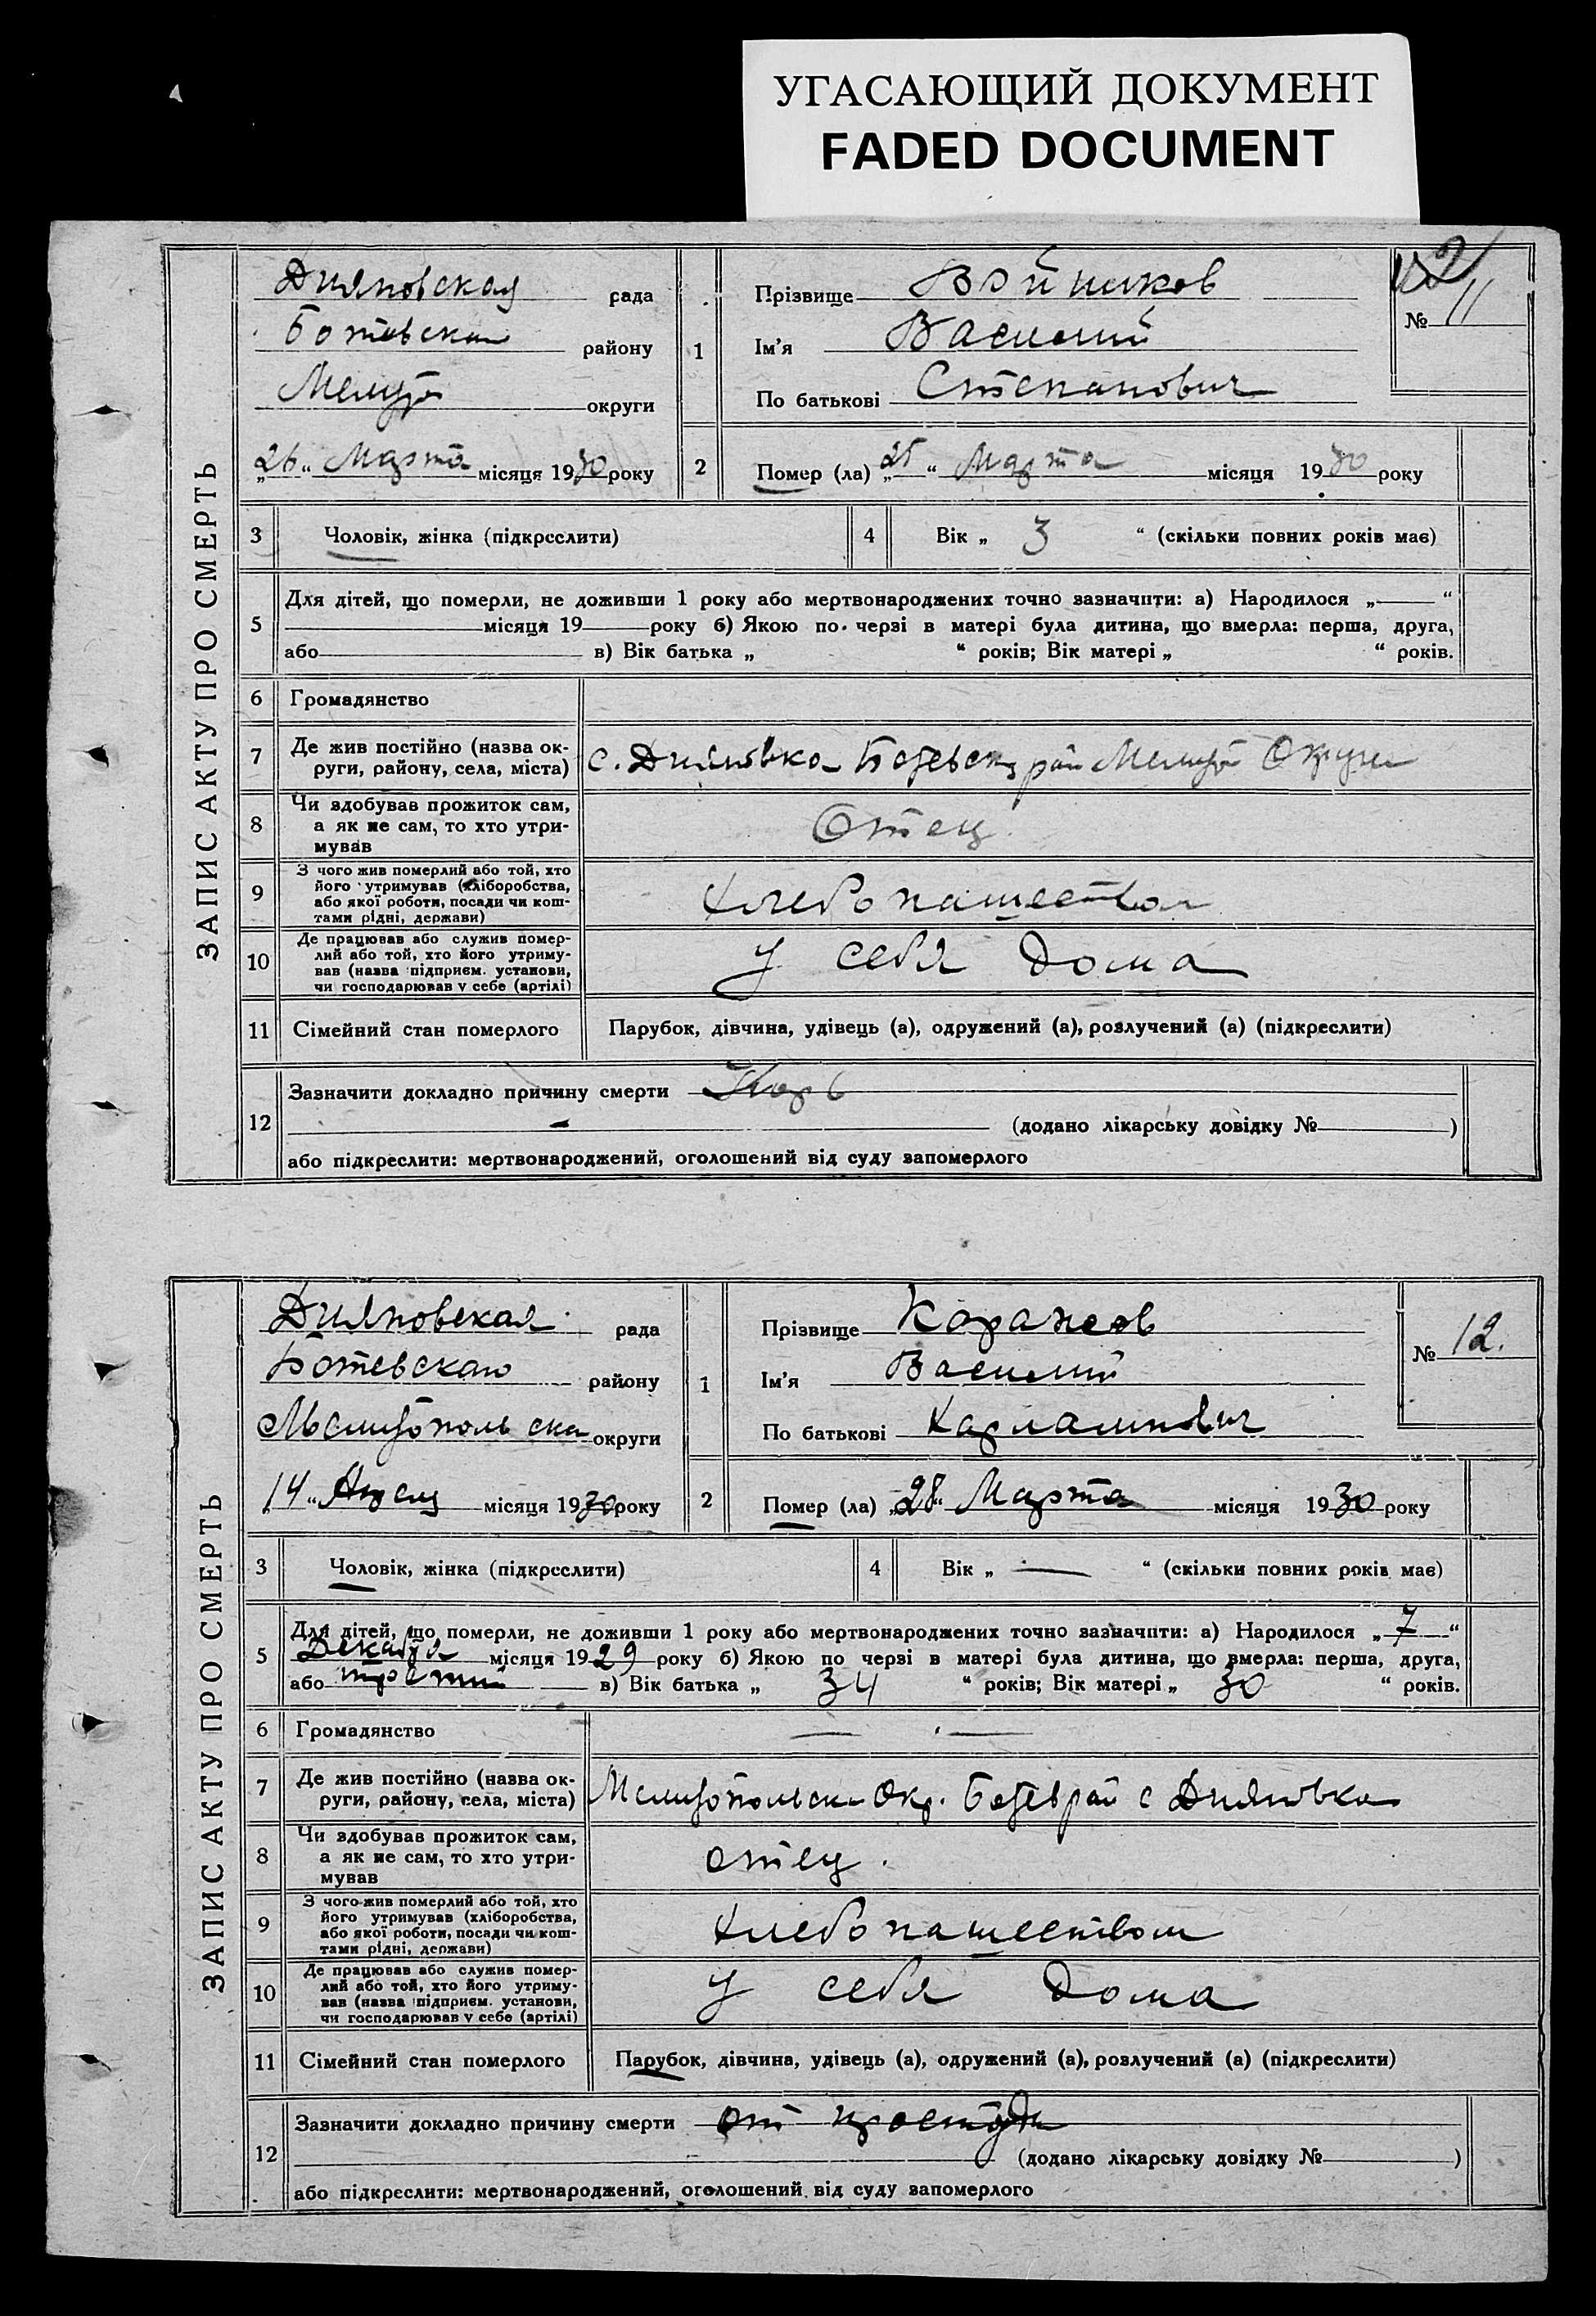 УГАСАЮЩИЙ ДОКУМЕНТ
FADED DOCUMENT
ЗАПИС АКТУ ПРО СМЕРТЬ
Дияновская рада
Ботевская району
Мелит округи
„26“ Марта місяця 1930 року
1
Прізвище Войников
Ім'я Василий
По батькові Степанович
№ 11
2 Помер (ла) „25“ Марта місяця 1930 року
3 Чоловік, жінка (підкреслити)
4 Вік „ 3 “ (скільки повних років має)
5 Для дітей, що померли, не доживши 1 року або мертвонароджених точно зазначити: а) Народилося „ “
місяця 19 року б) Якою по черзі в матері була дитина, що вмерла: перша, друга,
або в) Вік батька „ “ років; Вік матері „ “ років.
6 Громадянство
7 Де жив постійно (назва ок-
руги, району, села, міста) с. Дияновка Ботевск рай Мелит Округи
8 Чи здобував прожиток сам,
а як не сам, то хто утри-
мував Отец
9 З чого жив померлий або той, хто
його утримував (хліборобства,
або якої роботи, посади чи кош-
тами рідні, держави) Хлебопашеством
10 Де працював або служив помер-
лий або той, хто його утриму-
вав (назва підприєм. установи,
чи господарював у себе (артілі) У себя дома
11 Сімейний стан померлого Парубок, дівчина, удівець (а), одружений (а), розлучений (а) (підкреслити)
12 Зазначити докладно причину смерти Корь
(додано лікарську довідку № )
або підкреслити: мертвонароджений, оголошений від суду запомерлого
ЗАПИС АКТУ ПРО СМЕРТЬ
Дияновская рада
Ботевскаю району
Мелитопольска округи
14 „ Апреля місяця 1930 року
1
Прізвище Каражеов
Ім'я Василий
По батькові Харлампович
№ 12.
2 Помер (ла) „28“ Марта місяця 1930 року
3 Чоловік, жінка (підкреслити)
4 Вік „ — “ (скільки повних років має)
5 Для дітей, що померли, не доживши 1 року або мертвонароджених точно зазначити: а) Народилося „ 7 “
Декабря місяця 1929 року б) Якою по черзі в матері була дитина, що вмерла: перша, друга,
або третий в) Вік батька „ 34 “ років; Вік матері „ 30 “ років.
6 Громадянство — —
7 Де жив постійно (назва ок-
руги, району, села, міста) Мелитопольск Окр. Ботев рай с Дияновка
8 Чи здобував прожиток сам,
а як не сам, то хто утри-
мував отец.
9 З чого жив померлий або той, хто
його утримував (хліборобства,
або якої роботи, посади чи кош-
тами рідні, держави) Хлебопашеством
10 Де працював або служив помер-
лий або той, хто його утриму-
вав (назва підприєм. установи,
чи господарював у себе (артілі) У себя дома
11 Сімейний стан померлого Парубок, дівчина, удівець (а), одружений (а), розлучений (а) (підкреслити)
12 Зазначити докладно причину смерти от простуди
(додано лікарську довідку № )
або підкреслити: мертвонароджений, оголошений від суду запомерлого